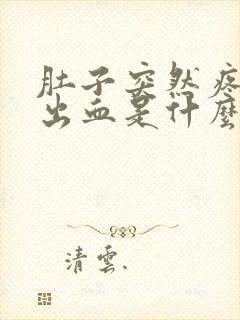 肚子突然疼
出血是什麼
清雲.